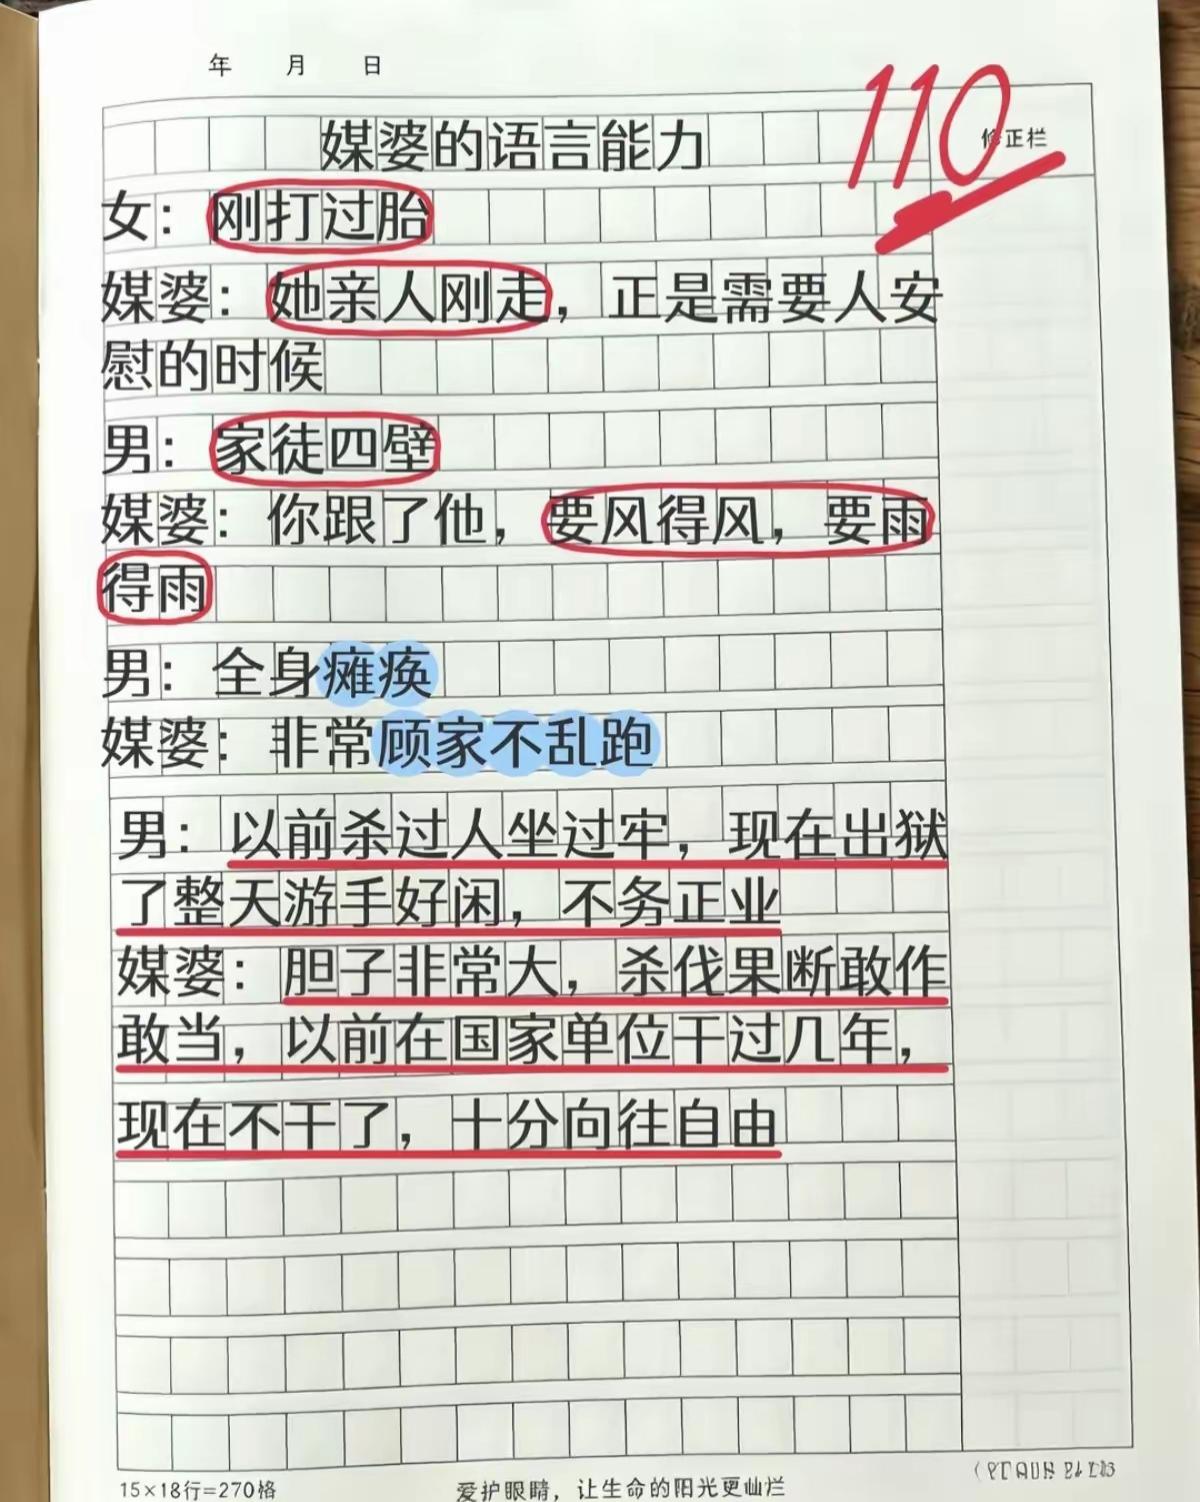 年 月 日
110
修正栏
媒婆的语言能力
女：刚打过胎
媒婆：她亲人刚走，正是需要人安
慰的时候
男：家徒四壁
媒婆：你跟了他，要风得风，要雨
得雨
男：全身瘫痪
媒婆：非常顾家不乱跑
男：以前杀过人坐过牢，现在出狱
了整天游手好闲，不务正业
媒婆：胆子非常大，杀伐果断敢作
敢当，以前在国家单位干过几年，
现在不干了，十分向往自由
15×18行=270格
爱护眼睛，让生命的阳光更灿烂